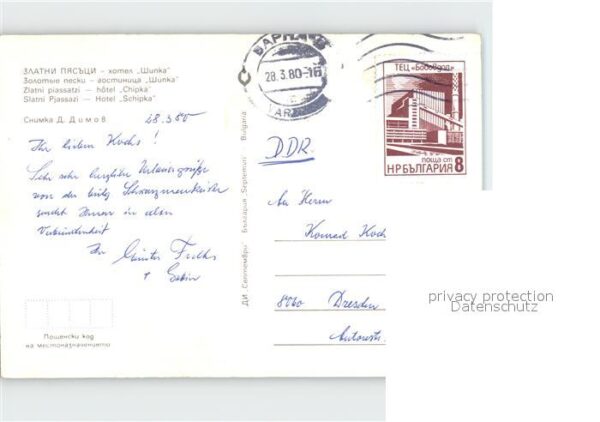 ЗЛАТНИ ПЯСЪЦИ – хотел „Шипка"
Золотые пески – гостиница „Шипка"
Zlatni piassatzi – hôtel „Chipka"
Slatni Pjassazi – Hotel „Schipka"
Снимка Д. Димов
28.3.80
Ihr lieben Kochs!
Sehr sehr herzliche Urlaubsgrüße
von der Schwarzmeerküste
sendet Ihnen in alter
Verbundenheit
Ihr Günter
Пощенски код
на местоназначението
ДИ „Септември" България „Septemvri" Bulgaria
ВАРНА
28.3.80-16
VARNA
ТЕЦ „Бобовдол"
ПОЩА СТ
НР БЪЛГАРИЯ 8
DDR.
An Herrn
Konrad Koch
8020 Dresden
privacy protection
Datenschutz